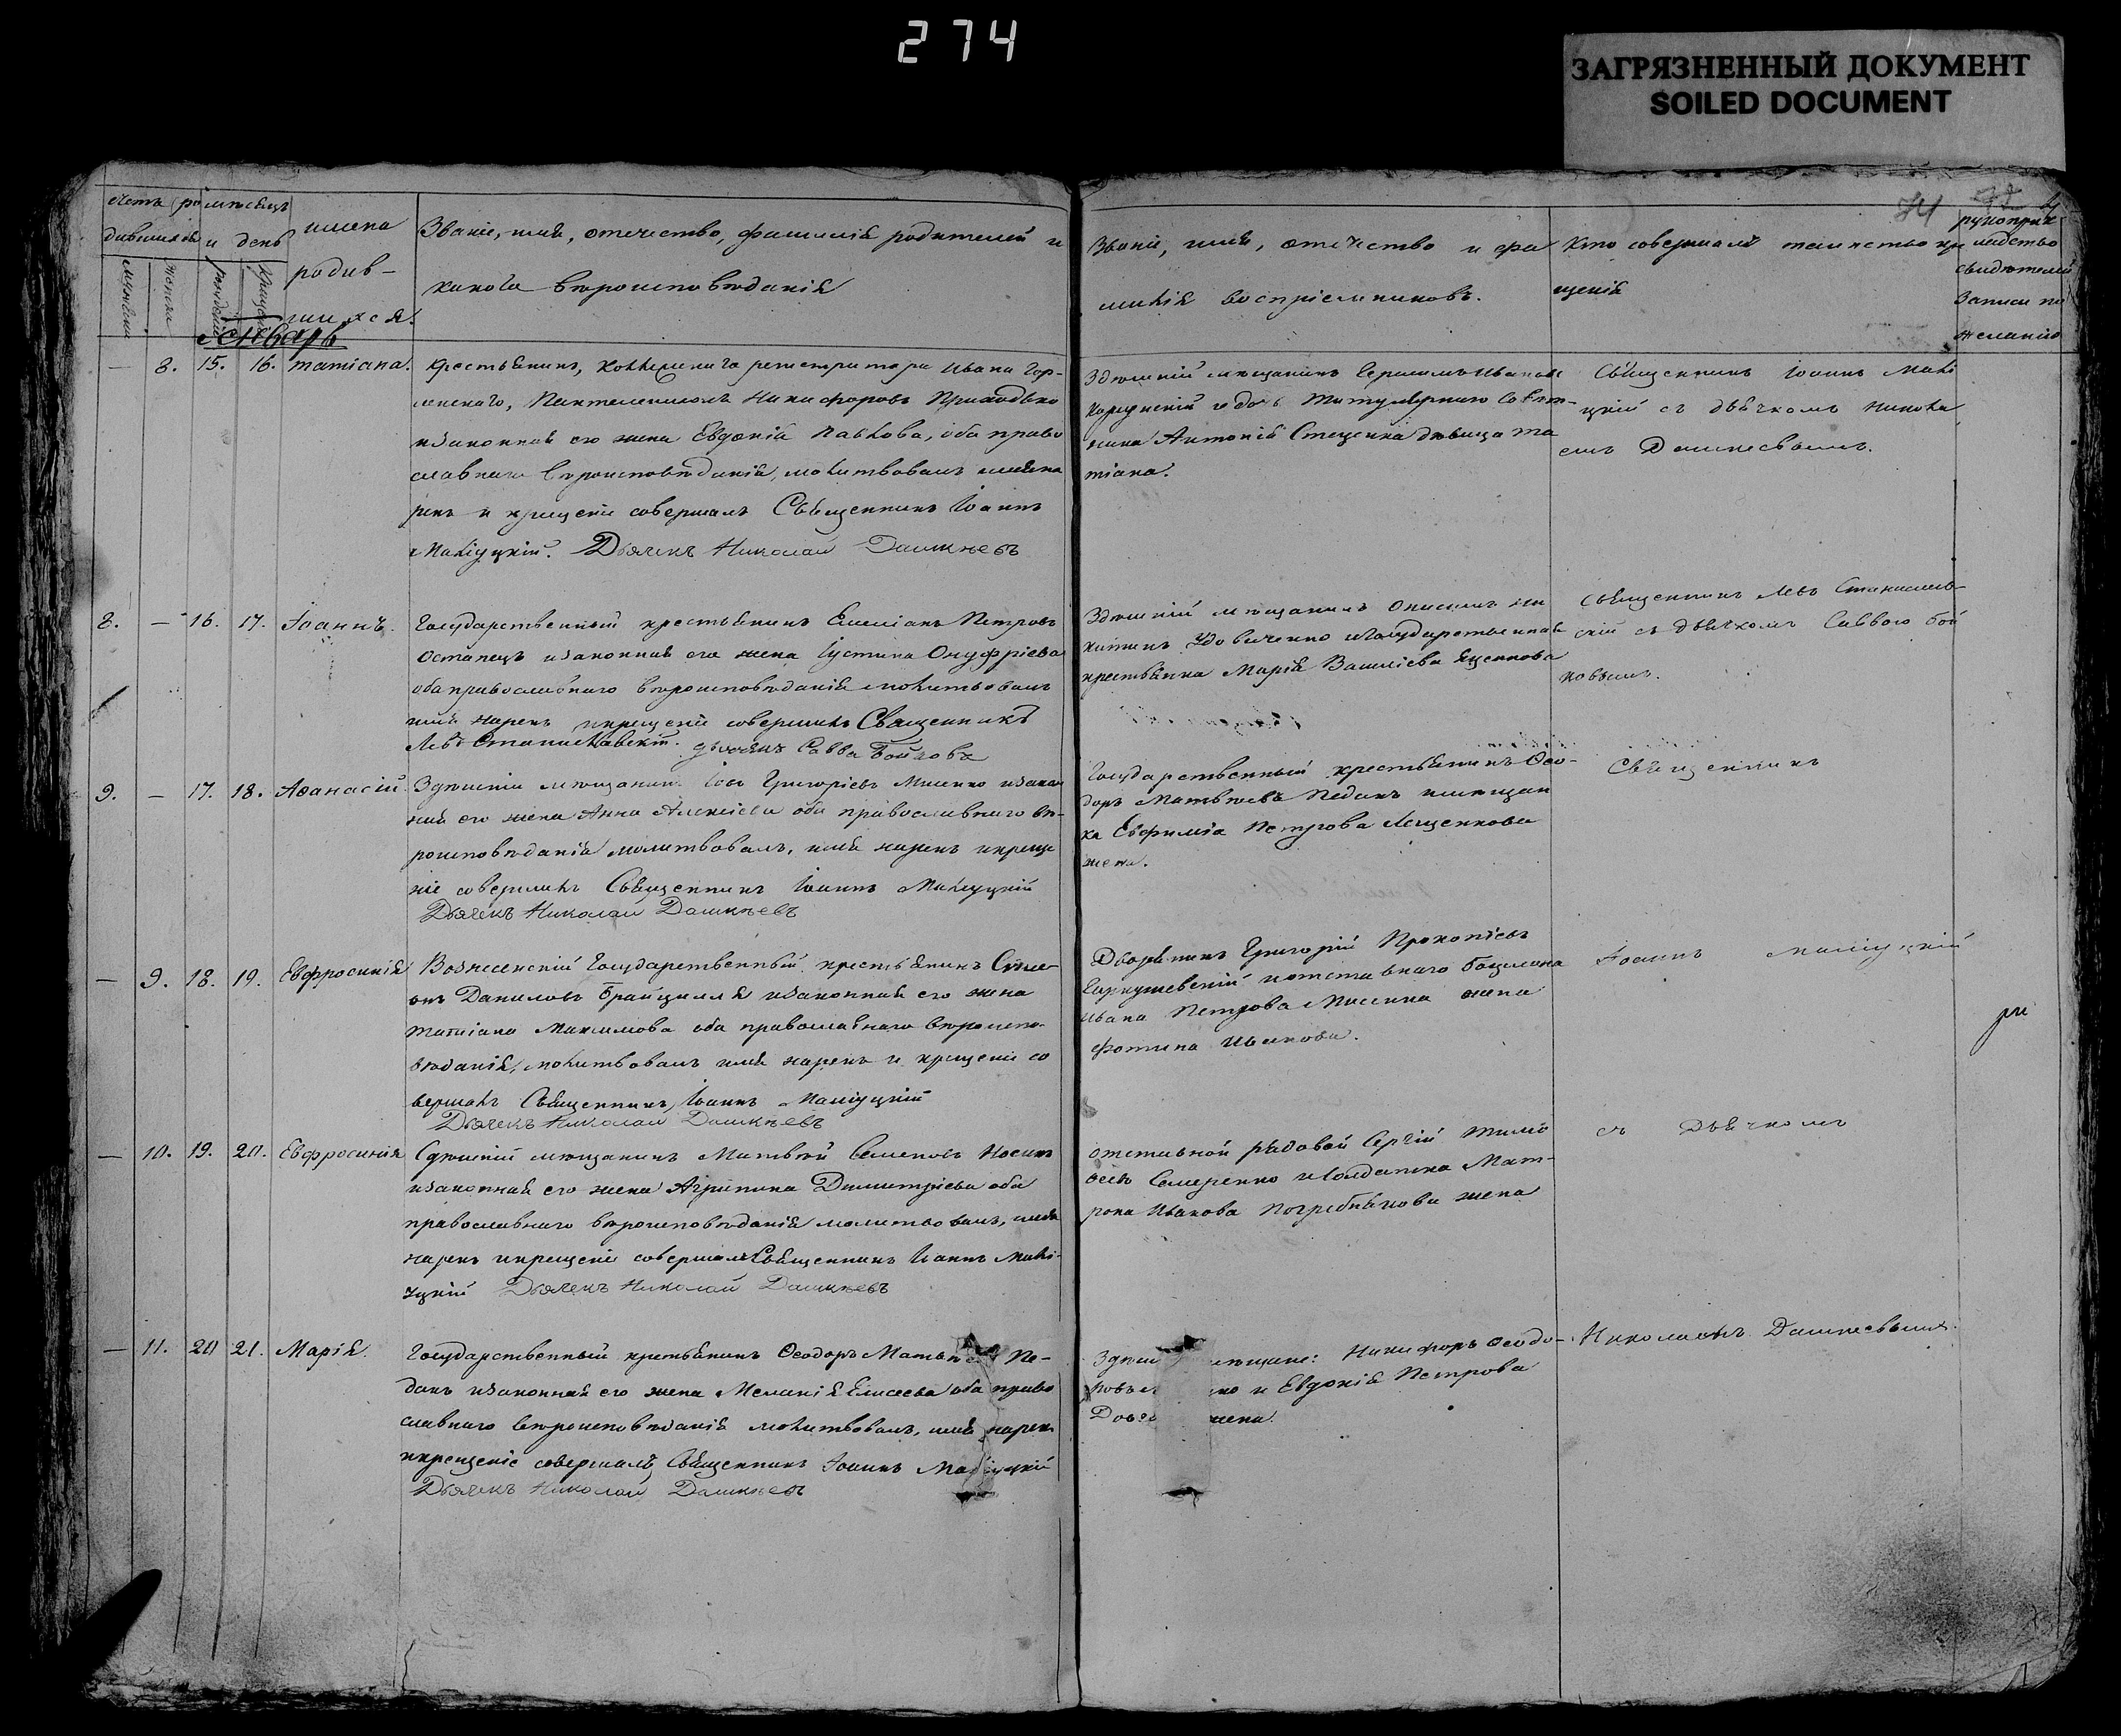 274
ЗАГРЯЗНЕННЫЙ ДОКУМЕНТ
SOILED DOCUMENT
74
Счетъ ро
дившихся
мѣсяцъ
и день
имена
родив-
шихся.
Званіе, имя, отечество, фамилія родителей и
какого вѣроисповѣданія
Званіе, имя, отечество и фа
милія воспріемниковъ.
Кто совершалъ таинство кр
щенія
рукоприк
ладство
свидѣтелей
записи по
желанію
Январь
— 8. 15. 16. татіана.
крестьянинъ, Коллежскаго регистратора Ивана Гор-
ленскаго, Пантелеимонъ Никифоровъ Приходько
изаконная его жена Евдокія Павлова, оба право
славнаго вѣроисповѣданія, молитвовалъ имя на
рекъ и крещеніе совершалъ Священникъ Іоаннъ
Маліуцкій. Дьячекъ Николай Дашкѣевъ
Здѣшній мѣщанинъ Герасимъ Ивановъ
титулярнаго Совѣт-
ника Антонія Стеценка дѣвица та
тіана.
Священникъ Іоаннъ Малі
уцкій съ дьячкомъ Никола
емъ Дашкеевымъ.
8. — 16. 17. Іоаннъ.
Государственный крестьянинъ Емеліанъ Петровъ
Остапецъ изаконная его жена Іустина Онуфріева
оба православнаго вѣроисповѣданія молитвовалъ
имя нарекъ икрещеніе совершилъ Священникъ
Левъ Станиславскій. дьячекъ Савва Бойковъ
Здѣшній мѣщанинъ Онисимъ Ни
китинъ Удовиченко иГосударственная
крестьянка Марія Василіева Яценкова
Священникъ Левъ Станислав-
скій съ дьячкомъ Саввою Бой
ковымъ.
9. — 17. 18. Аѳанасій
Здѣшній мѣщанинъ Іовъ Григоріевъ Мисенко изакон
ная его жена Анна Алексіева оба православнаго вѣ-
роисповѣданія молитвовалъ, имя нарекъ икреще
ніе совершилъ Священникъ Іоаннъ Маліуцкій
Дьячекъ Николай Дашкѣевъ
Государственный крестьянинъ Ѳео-
доръ Матвѣевъ Педанъ имѣщан
ка Евфимія Петрова Лещенкова
жена.
Священникъ
— 9. 18. 19. Евфросинія
Вознесенскій Государственный крестьянинъ Симе-
онъ Даниловъ Брайцилля изаконная его жена
Татіана Максимова оба православнаго вѣроиспо-
вѣданія, молитвовалъ имя нарекъ и крещеніе со
вершалъ Священникъ, Іоаннъ Маліуцкій
Дьячекъ Николай Дашкѣевъ
Дворянинъ Григорій Прокопіевъ
иотставнаго боцмана
Ивана Петрова Мисника жена
Фотина Иванова.
Іоаннъ Маліуцкій
— 10. 19. 20. Евфросинія
Сдѣшній мѣщанинъ Матвѣй Семеновъ Носикъ
изаконная его жена Агрипина Димитріева оба
православнаго вѣроисповѣданія молитвовалъ, имя
нарекъ икрещеніе совершалъ Священникъ Іоаннъ Малі-
уцкій Дьячекъ Николай Дашкѣевъ
отставной рядовой Сергій Тимо
ѳеевъ Семеренко иСолдатка Мат-
рона Иванова Погребнякова жена
съ Дьячкомъ
— 11. 20 21. Марія.
Государственный крестьянинъ Ѳеодоръ Матвѣевъ Пе-
данъ изаконная его жена Меланія Елисеева оба право
славнаго вѣроисповѣданія молитвовалъ, имя нарекъ
икрещеніе совершалъ Священникъ Іоаннъ Маліуцкій
Дьячекъ Николай Дашкѣевъ
Никифоръ Ѳеодо-
и Евдокія Петрова
жена.
Николаемъ Дашкеевымъ.